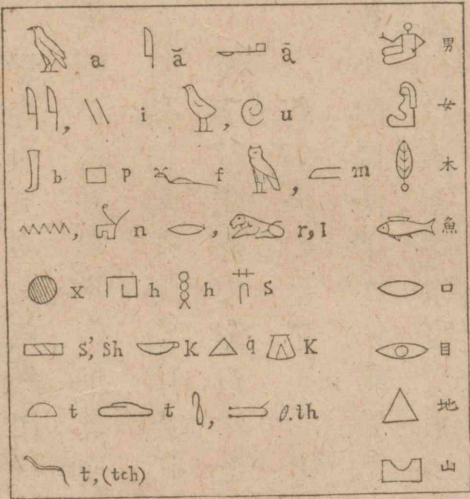 a ă ā 男
, i , u 女
b p f , m 木
, n , r, l 魚
x h h s 口
s', sh k q K 目
t t , θ.th 地
t, (tch) 山